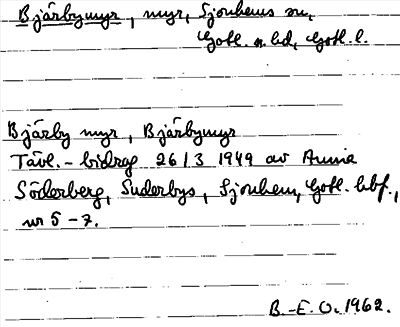 Bjärbymyr, myr, Sjonhems sn,
Gotl. n. hd, Gotl. l.
Bjärby myr, Bjärbymyr
Tävl.-bidrag 26/3 1949 av Anna
Söderberg, Suderbys, Sjonhem, Gotl. hbf.,
nr 5-7.
B.-E. O. 1962.